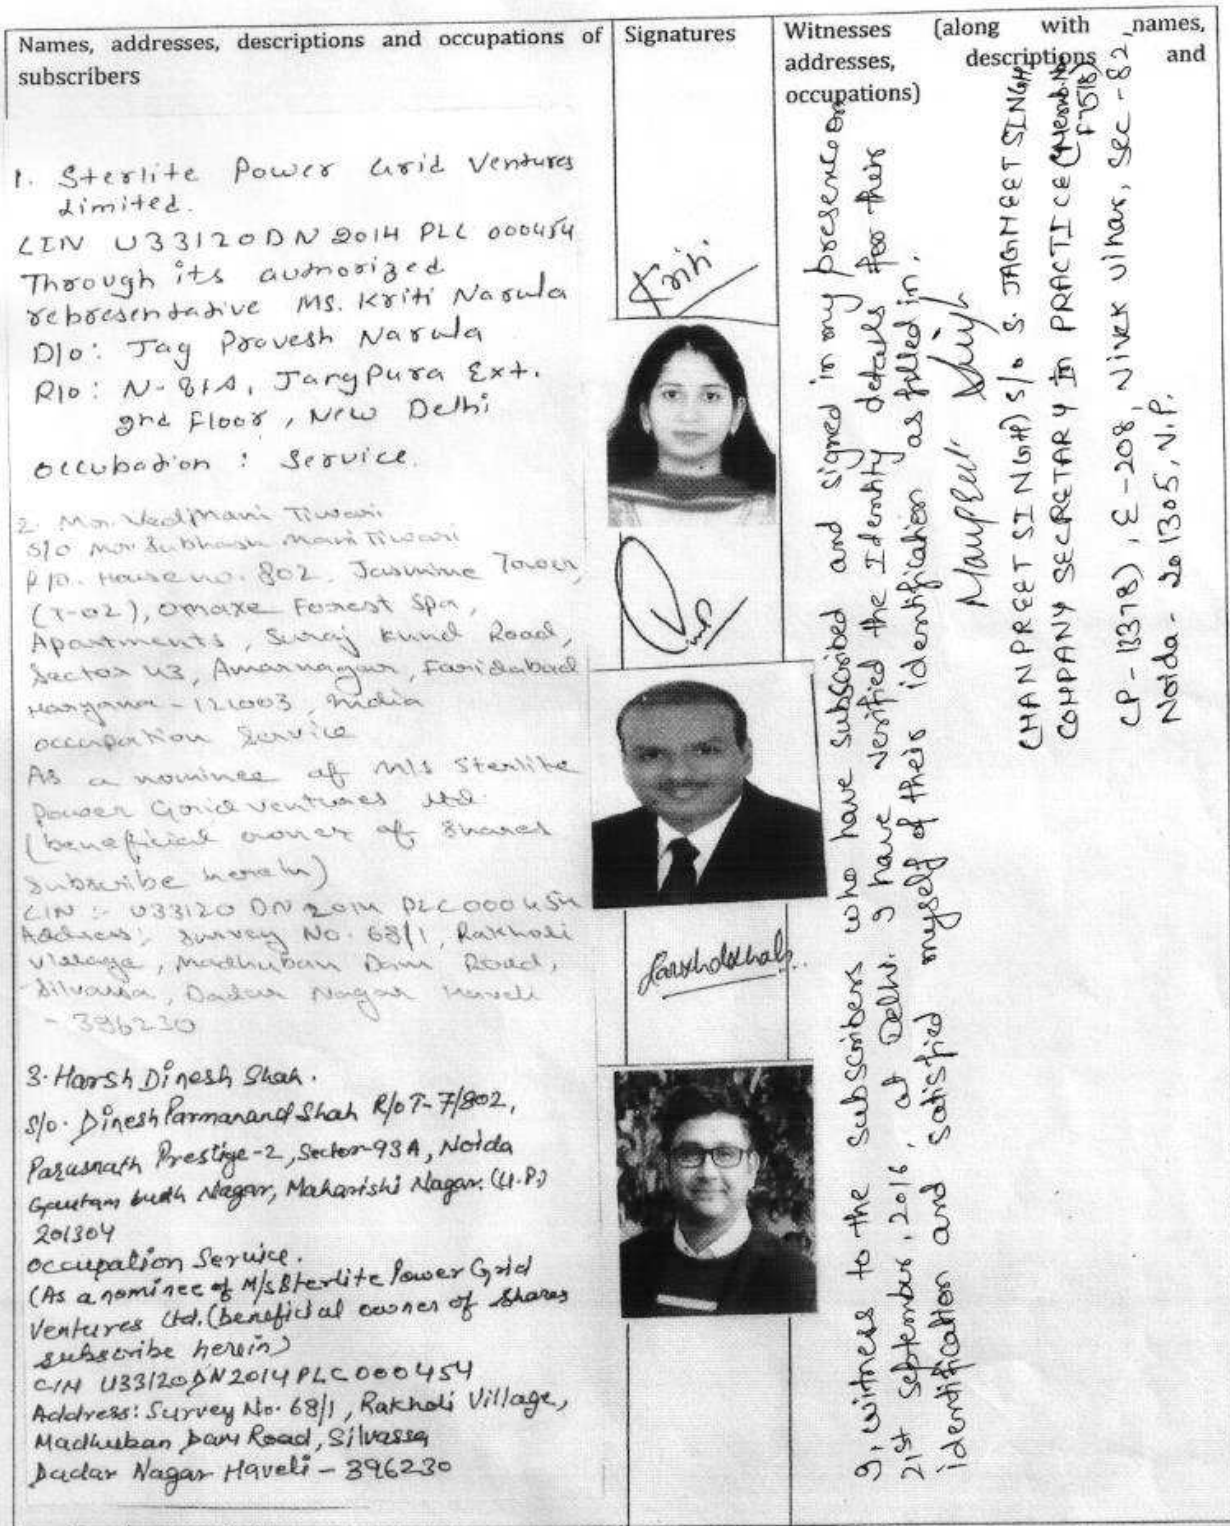 Names, addresses, descriptions and occupations of
subscribers
Signatures
Witnesses (along with names,
addresses, descriptions and
occupations)
1. Sterlite Power Grid Ventures
Limited.
CIN U33120DN2014PLC000454
Through its authorized
rebresentative Ms. Kriti Narula
D/o: Jag Pravesh Narula
R/o: N-81A, JangPura Ext.
2nd Floor, New Delhi
occubation : Service.
Kriti
2. Mr. Ved Mani Tiwari
S/o Mr Subhash Mani Tiwari
R/o. House no. 802, Jasmine Tower,
(T-02), Omaxe Forest Spa,
Apartments, Suraj Kund Road,
Sector 43, Amarnagar, Faridabad
Haryana - 121003, India
occupation Service
As a nominee of M/s Sterlite
Power Grid Ventures Ltd.
(beneficial owner of shares
subscribe herein)
CIN :- U33120DN2014PLC000454
Address: Survey No. 68/1, Rakholi
Village, Madhuban Dam Road,
Silvassa, Dadar Nagar Haveli
- 396230
3. Harsh Dinesh Shah.
S/o. Dinesh Parmanand Shah R/o T-7/802,
Parasnath Prestige-2, Sector-93A, Noida
Gautam budh Nagar, Maharishi Nagar. (U.P.)
201304
occupation Service.
(As a nominee of M/s Sterlite Power Grid
Ventures Ltd. (beneficial owner of shares
subscribe herein)
CIN U33120DN2014PLC000454
Address: Survey No. 68/1, Rakholi Village,
Madhuban Dam Road, Silvassa
Dadar Nagar Haveli - 396230
I, witness to the subscribers who have subscribed and signed in my presence on
21st September, 2016, at Delhi. I have verified the Identity details for their
identification and satisfied myself of their identification as filled in.
Manpreet Singh
(MANPREET SINGH) S/o S. JAGMEET SINGH
COMPANY SECRETARY IN PRACTICE (Memb. No F7518)
CP-13378), E-208, Vivek Vihar, Sec-82,
Noida - 201305, U.P.